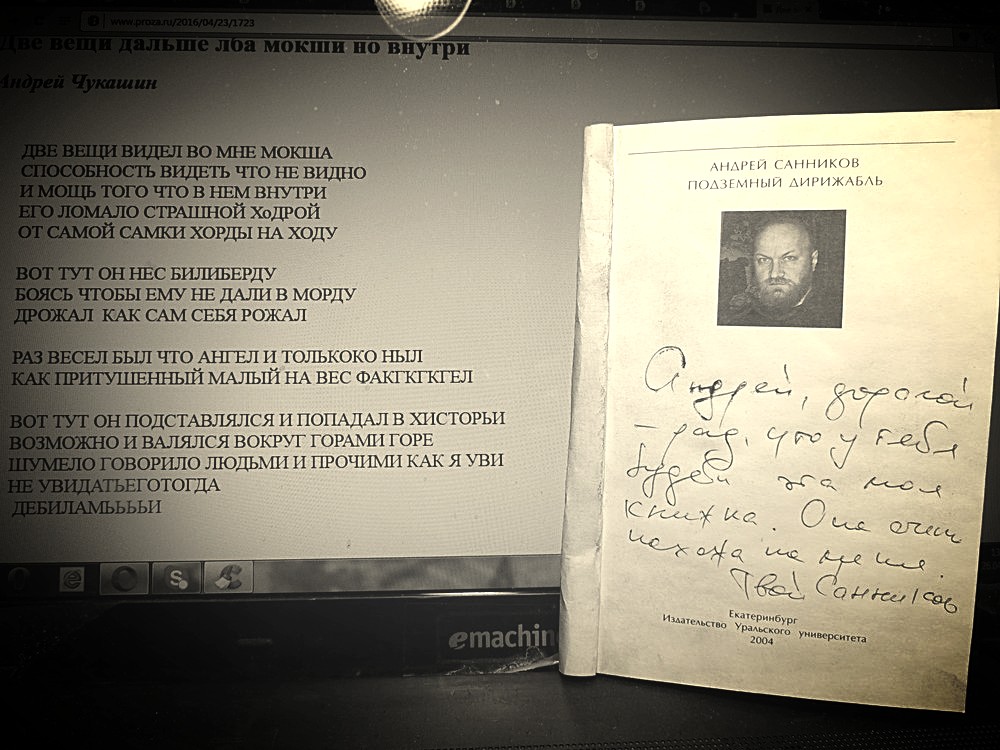 www.proza.ru/2016/04/23/1723
Две вещи дальше лба мокши но внутри
Андрей Чукашин
ДВЕ ВЕЩИ ВИДЕЛ ВО МНЕ МОКША
СПОСОБНОСТЬ ВИДЕТЬ ЧТО НЕ ВИДНО
И МОЩЬ ТОГО ЧТО В НЕМ ВНУТРИ
ЕГО ЛОМАЛО СТРАШНОЙ ХоДРОЙ
ОТ САМОЙ САМКИ ХОРДЫ НА ХОДУ
ВОТ ТУТ ОН НЕС БИЛИБЕРДУ
БОЯСЬ ЧТОБЫ ЕМУ НЕ ДАЛИ В МОРДУ
ДРОЖАЛ КАК САМ СЕБЯ РОЖАЛ
РАЗ ВЕСЕЛ БЫЛ ЧТО АНГЕЛ И ТОЛЬКОКО НЫЛ
КАК ПРИТУШЕННЫЙ МАЛЫЙ НА ВЕС ФАКГКГКГЕЛ
ВОТ ТУТ ОН ПОДСТАВЛЯЛСЯ И ПОПАДАЛ В ХИСТОРЬИ
ВОЗМОЖНО И ВАЛЯЛСЯ ВОКРУГ ГОРАМИ ГОРЕ
ШУМЕЛО ГОВОРИЛО ЛЮДЬМИ И ПРОЧИМИ КАК Я УВИ
НЕ УВИДАТЬЕГОТОГДА
ДЕБИЛАМЬЬЬЬИ
emachin
АНДРЕЙ САННИКОВ
ПОДЗЕМНЫЙ ДИРИЖАБЛЬ
Андрей, дорогой
– рад, что у тебя
будет эта моя
книжка. Она очень
похожа на меня.
Твой Санников
Екатеринбург
Издательство Уральского университета
2004